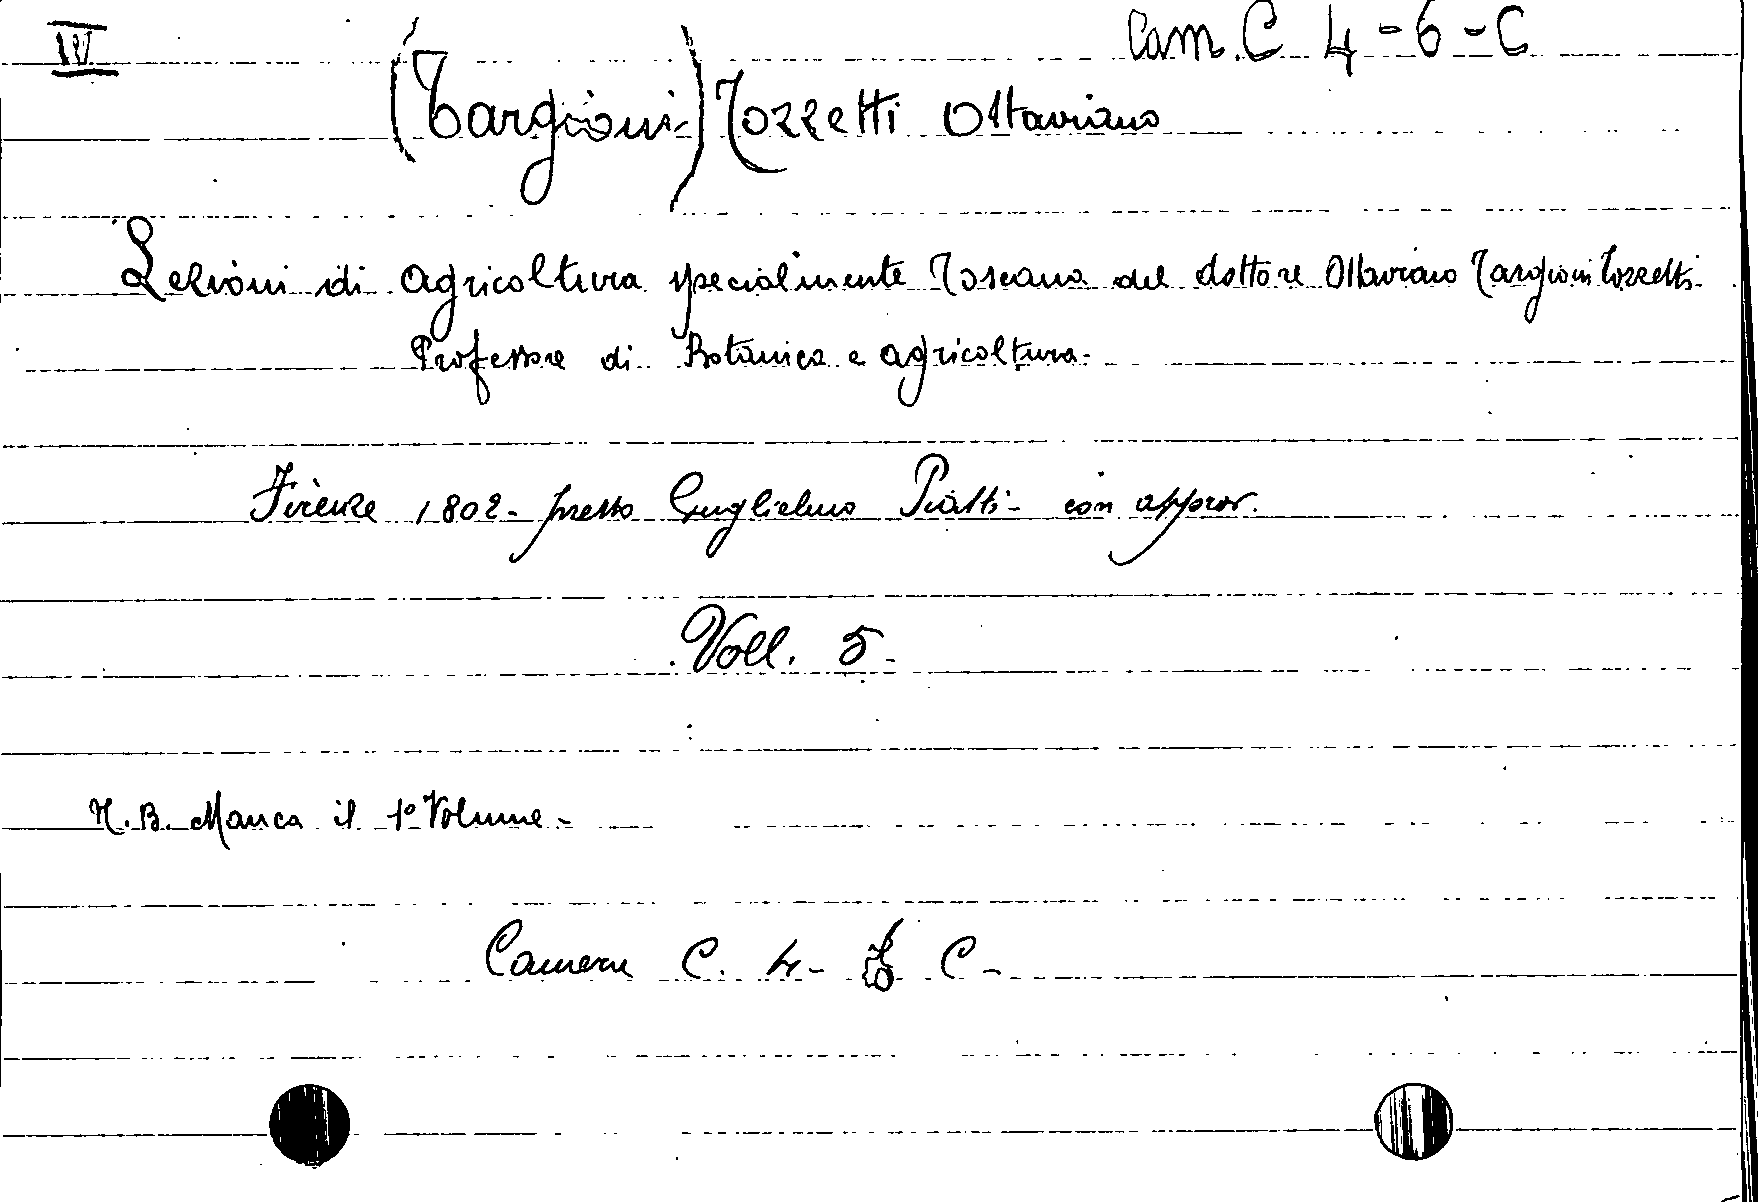 IV
Cam. C 4-6-C
(Targioni-) Tozzetti Ottaviano
Lezioni di agricoltura specialmente Toscana del dottore Ottaviano Targioni Tozzetti-
Professore di Botanica e agricoltura-
Firenze 1802- presso Guglielmo Piatti- con approv.
Voll. 5-
N.B. Manca il 1° Volume-
Camera C. 4- 6 C-